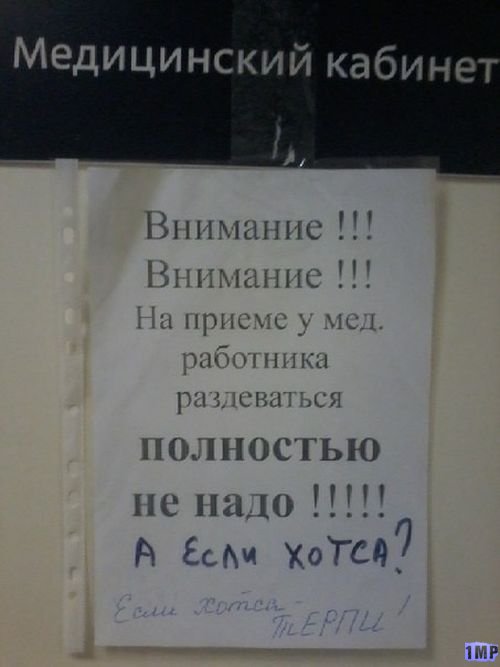 Медицинский кабинет
Внимание !!!
Внимание !!!
На приеме у мед.
работника
раздеваться
полностью
не надо !!!!!
А Если хотса?
Если хотса -
ТЕРПИ!
1MP